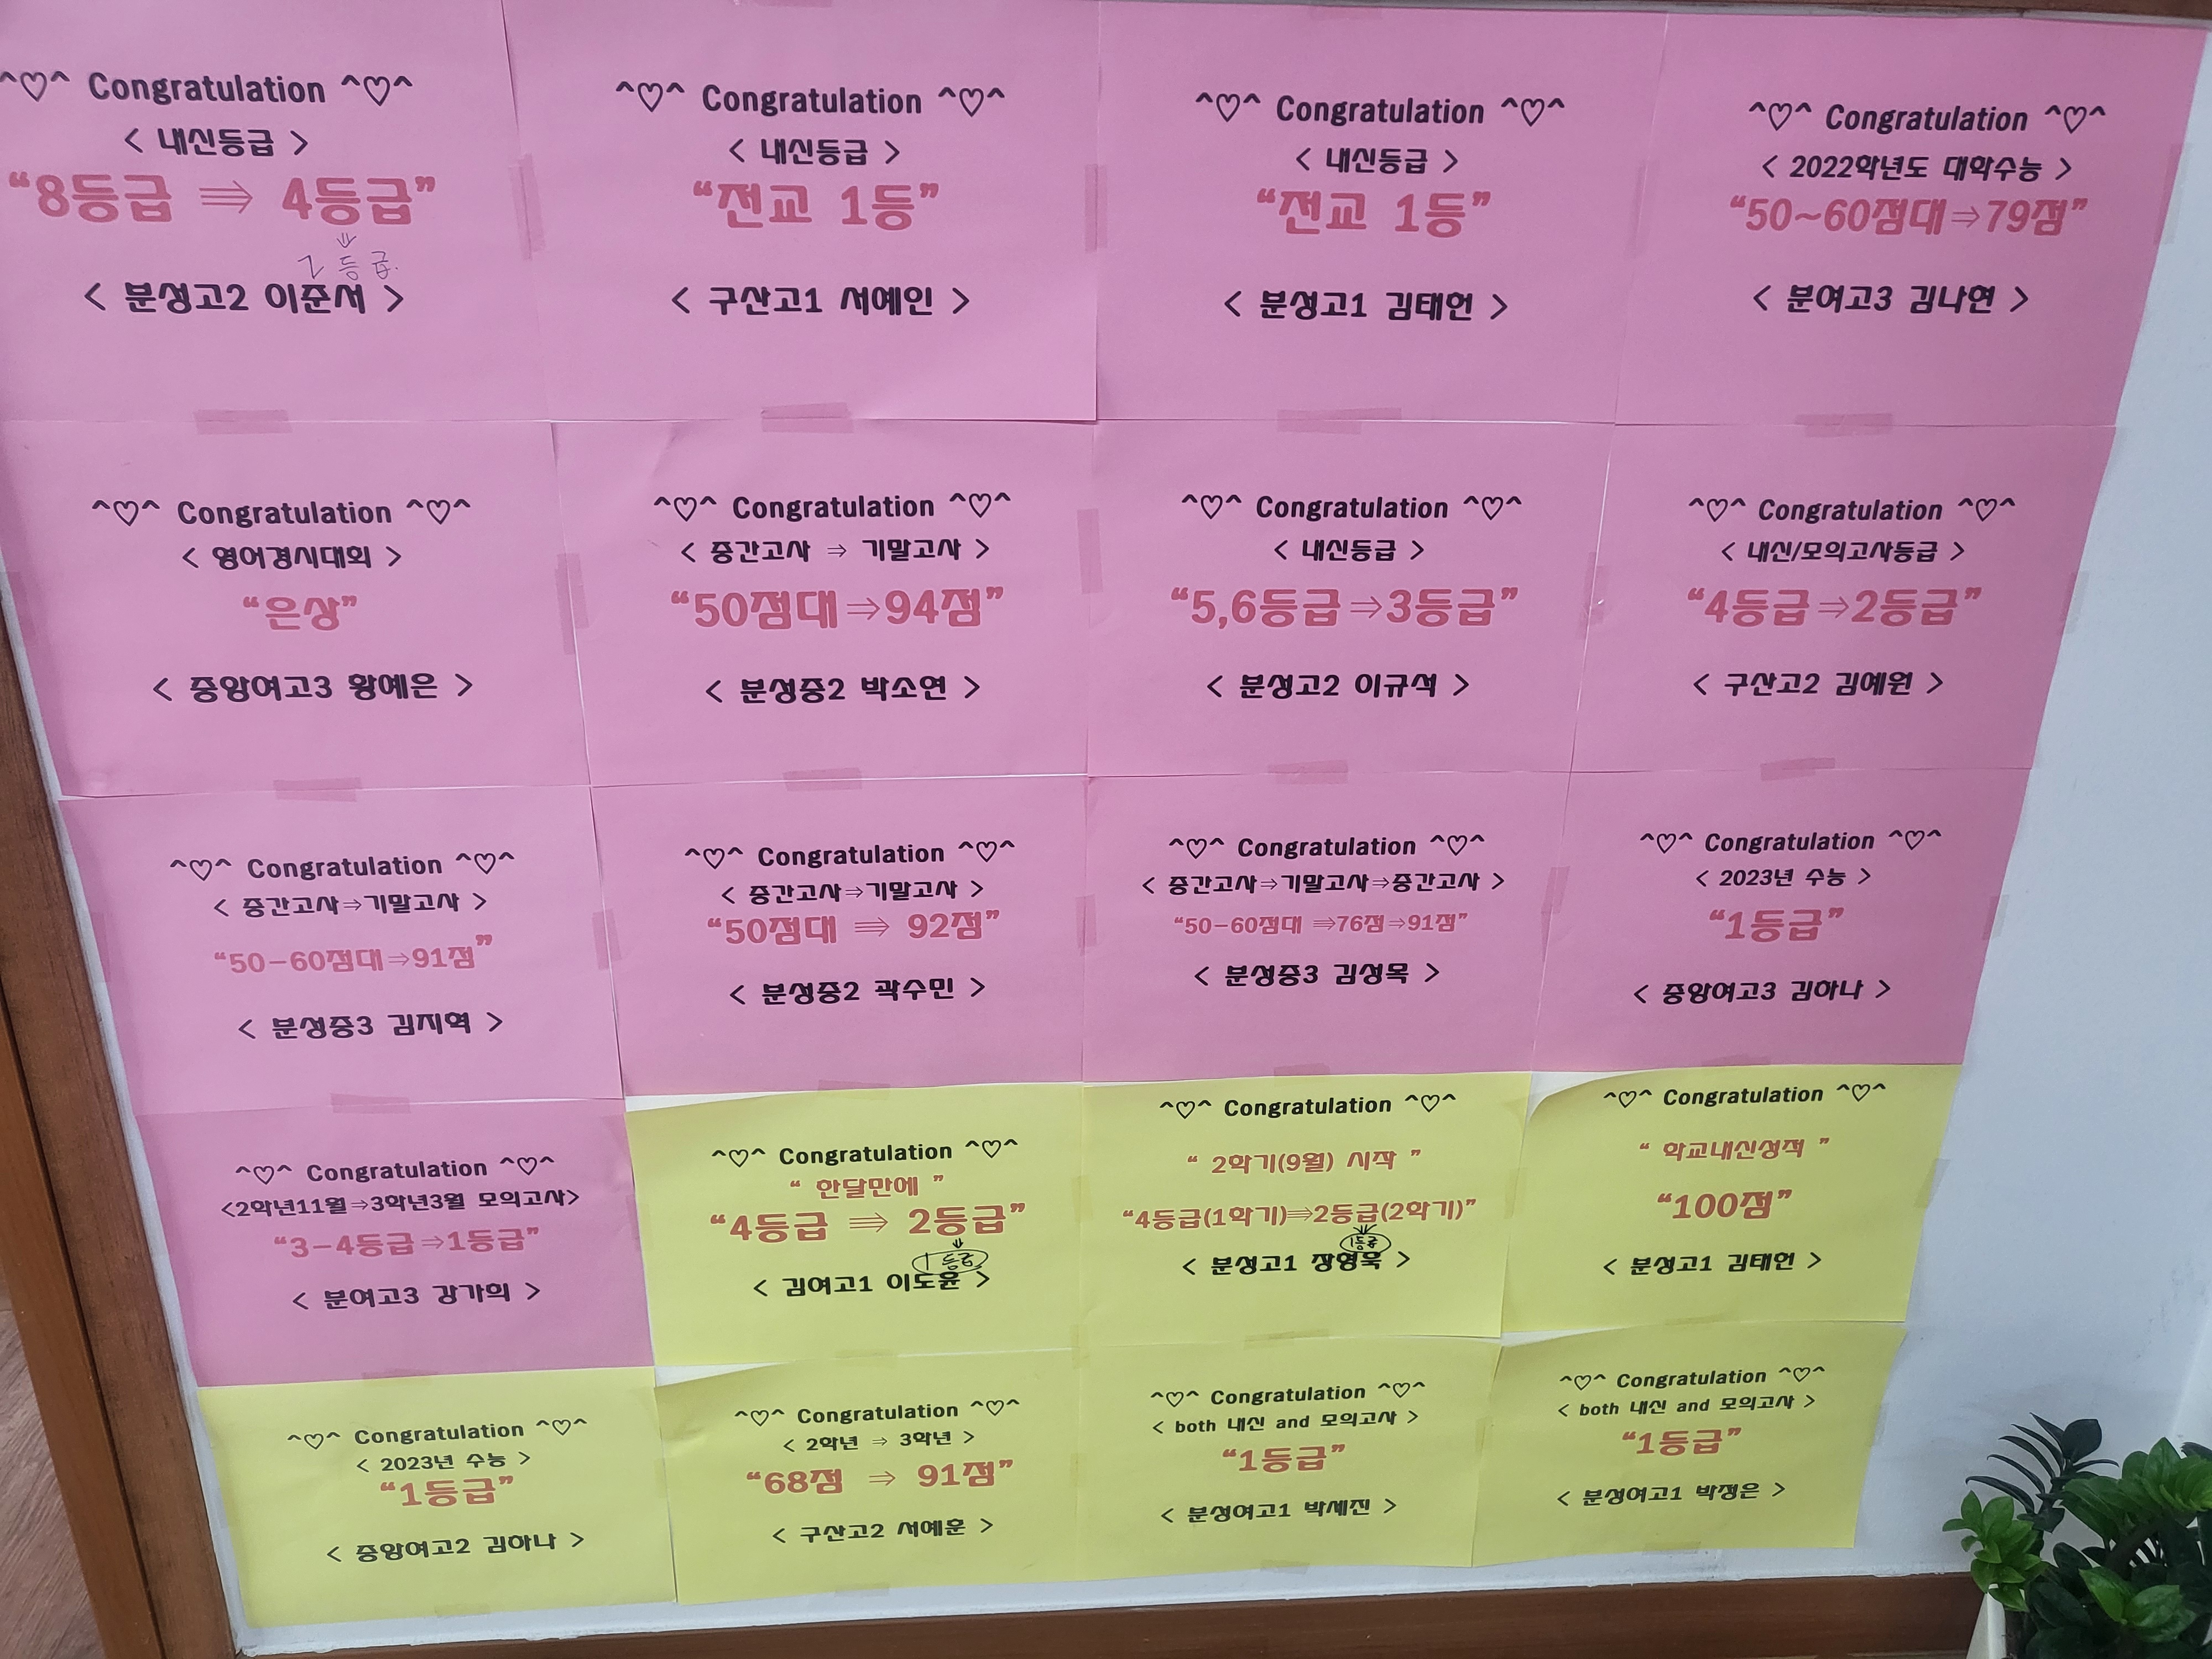 ^♡^ Congratulation ^♡^
< 내신등급 >
“8등급 ⇛ 4등급”
⇓
2등급.
< 분성고2 이준서 >
^♡^ Congratulation ^♡^
< 내신등급 >
“전교 1등”
< 구산고1 서예인 >
^♡^ Congratulation ^♡^
< 내신등급 >
“전교 1등”
< 분성고1 김태헌 >
^♡^ Congratulation ^♡^
< 2022학년도 대학수능 >
“50~60점대⇒79점”
< 분여고3 김나현 >
^♡^ Congratulation ^♡^
< 영어경시대회 >
“은상”
< 중앙여고3 황예은 >
^♡^ Congratulation ^♡^
< 중간고사 ⇒ 기말고사 >
“50점대⇒94점”
< 분성중2 박소연 >
^♡^ Congratulation ^♡^
< 내신등급 >
“5,6등급⇒3등급”
< 분성고2 이규석 >
^♡^ Congratulation ^♡^
< 내신/모의고사등급 >
“4등급⇒2등급”
< 구산고2 김예원 >
^♡^ Congratulation ^♡^
< 중간고사⇒기말고사 >
“50-60점대⇒91점”
< 분성중3 김지혁 >
^♡^ Congratulation ^♡^
< 중간고사⇒기말고사 >
“50점대 ⇛ 92점”
< 분성중2 곽수민 >
^♡^ Congratulation ^♡^
< 중간고사⇒기말고사⇒중간고사 >
“50-60점대 ⇛76점⇒91점”
< 분성중3 김성목 >
^♡^ Congratulation ^♡^
< 2023년 수능 >
“1등급”
< 중앙여고3 김하나 >
^♡^ Congratulation ^♡^
<2학년11월⇒3학년3월 모의고사>
“3-4등급⇒1등급”
< 분여고3 강가희 >
^♡^ Congratulation ^♡^
“ 한달만에 ”
“4등급 ⇛ 2등급”
⇓
1등급
< 김여고1 이도윤 >
^♡^ Congratulation ^♡^
“ 2학기(9월) 시작 ”
“4등급(1학기)⇛2등급(2학기)”
⇓
1등급
< 분성고1 장형욱 >
^♡^ Congratulation ^♡^
“ 학교내신성적 ”
“100점”
< 분성고1 김태헌 >
^♡^ Congratulation ^♡^
< 2023년 수능 >
“1등급”
< 중앙여고2 김하나 >
^♡^ Congratulation ^♡^
< 2학년 ⇒ 3학년 >
“68점 ⇒ 91점”
< 구산고2 서예훈 >
^♡^ Congratulation ^♡^
< both 내신 and 모의고사 >
“1등급”
< 분성여고1 박세진 >
^♡^ Congratulation ^♡^
< both 내신 and 모의고사 >
“1등급”
< 분성여고1 박정은 >